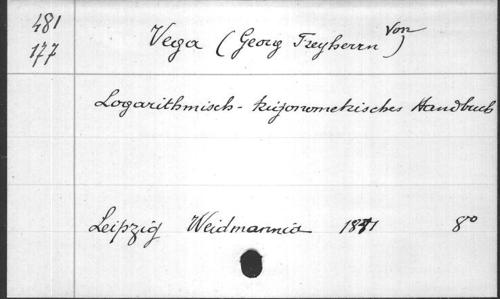 481
177
Vega (Georg Freyherrn von)
Logarithmisch-trigonometrisches Handbuch
Leipzig Weidmannia 8º